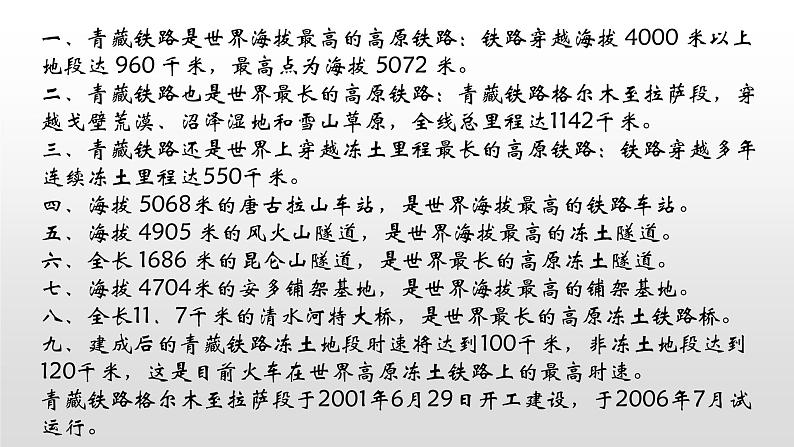 一、青藏铁路是世界海拔最高的高原铁路：铁路穿越海拔 4000 米以上
地段达 960 千米，最高点为海拔 5072 米。
二、青藏铁路也是世界最长的高原铁路：青藏铁路格尔木至拉萨段，穿
越戈壁荒漠、沼泽湿地和雪山草原，全线总里程达1142千米。
三、青藏铁路还是世界上穿越冻土里程最长的高原铁路：铁路穿越多年
连续冻土里程达550千米。
四、海拔 5068米的唐古拉山车站，是世界海拔最高的铁路车站。
五、海拔 4905 米的风火山隧道，是世界海拔最高的冻土隧道。
六、全长 1686 米的昆仑山隧道，是世界最长的高原冻土隧道。
七、海拔 4704米的安多铺架基地，是世界海拔最高的铺架基地。
八、全长11．7千米的清水河特大桥，是世界最长的高原冻土铁路桥。
九、建成后的青藏铁路冻土地段时速将达到100千米，非冻土地段达到
120千米，这是目前火车在世界高原冻土铁路上的最高时速。
青藏铁路格尔木至拉萨段于2001年6月29日开工建设，于2006年7月试
运行。